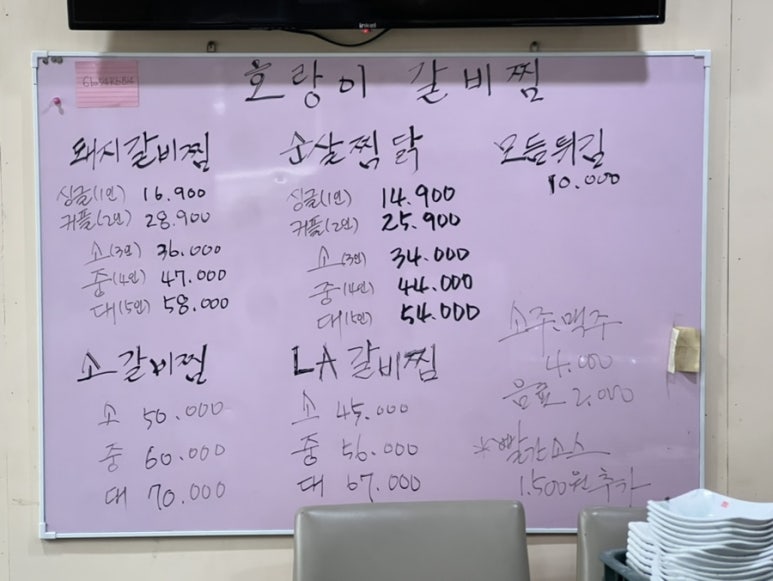 호랑이 갈비찜
돼지갈비찜
싱글(1인) 16.900
커플(2인) 28.900
소(3인) 36.000
중(4인) 47.000
대(5인) 58.000
순살찜닭
싱글(1인) 14.900
커플(2인) 25.900
소(3인) 34.000
중(4인) 44.000
대(5인) 54.000
모듬튀김
10.000
소갈비찜
소 50.000
중 60.000
대 70.000
LA갈비찜
소 45.000
중 56.000
대 67.000
소주.맥주
4.000
음료 2.000
*빨간소스
1.500원 추가